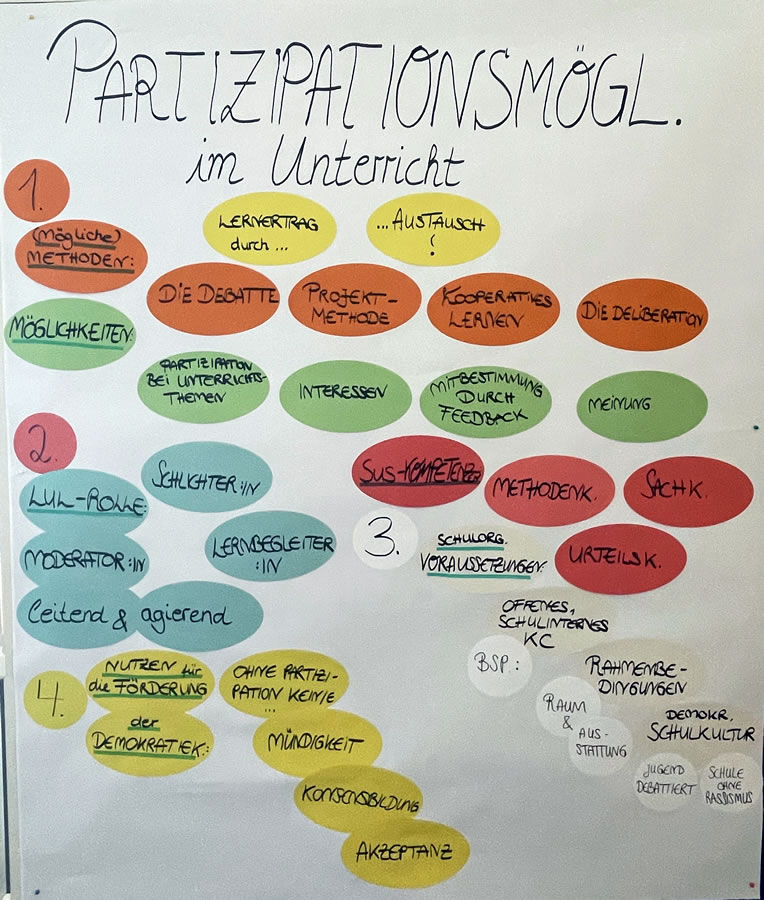 PARTIZIPATIONSMÖGL.
im Unterricht
1.
(Mögliche)
METHODEN:
LERNVERTRAG
durch ...
...AUSTAUSCH
!
DIE DEBATTE
PROJEKT-
METHODE
KOOPERATIVES
LERNEN
DIE DELIBERATION
MÖGLICHKEITEN:
PARTIZIPATION
BEI UNTERRICHTS-
THEMEN
INTERESSEN
MITBESTIMMUNG
DURCH
FEEDBACK
MEINUNG
2.
LUL-ROLLE:
SCHLICHTER:IN
MODERATOR:IN
LERNBEGLEITER
:IN
leitend & agierend
SUS-KOMPETENZEN
METHODENK.
SACHK.
URTEILSK.
3.
SCHULORG.
VORAUSSETZUNGEN:
OFFENES,
SCHULINTERNES
KC
BSP.:
RAHMENBE-
DINGUNGEN
RAUM
&
AUS-
STATTUNG
DEMOKR.
SCHULKULTUR
JUGEND
DEBATTIERT
SCHULE
OHNE
RASSISMUS
4.
NUTZEN für
die FÖRDERUNG
der
DEMOKRATIEK:
OHNE PARTIZI-
PATION KEIN/E
...
MÜNDIGKEIT
KONSENSBILDUNG
AKZEPTANZ